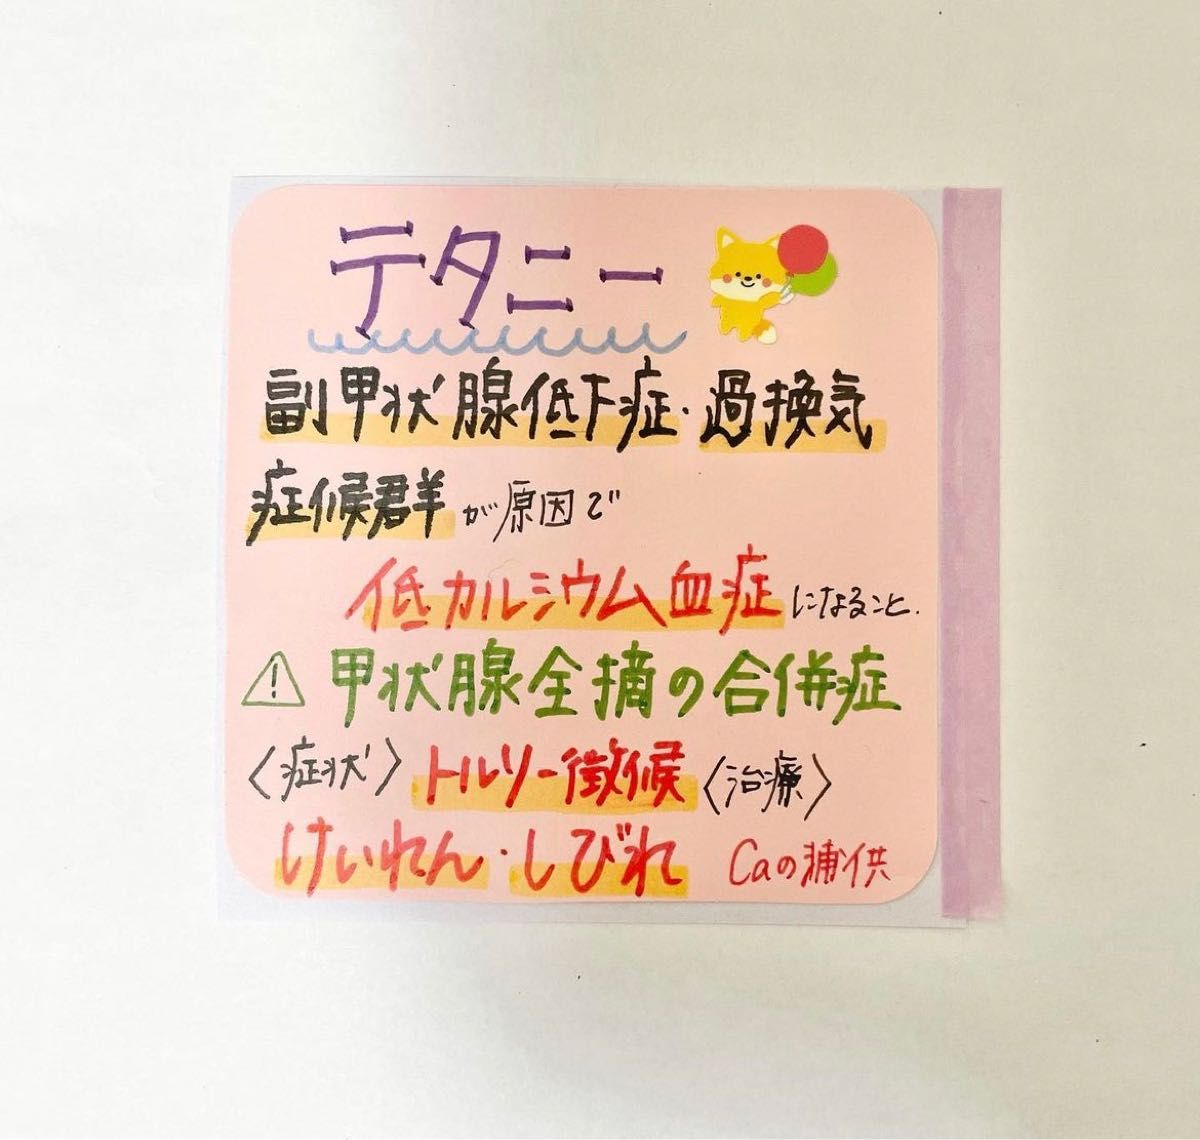 テタニー
副甲状腺低下症・過換気
症候群が原因で
低カルシウム血症になること.
⚠ 甲状腺全摘の合併症
〈症状〉トルソー徴候〈治療〉
けいれん・しびれ Caの補供